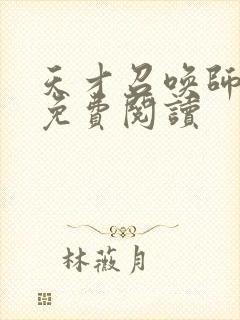 天才召喚師
免費閱讀
林薇月